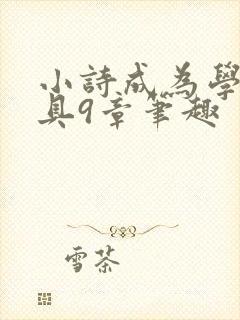 小詩成為學
具9章筆趣
雪茶